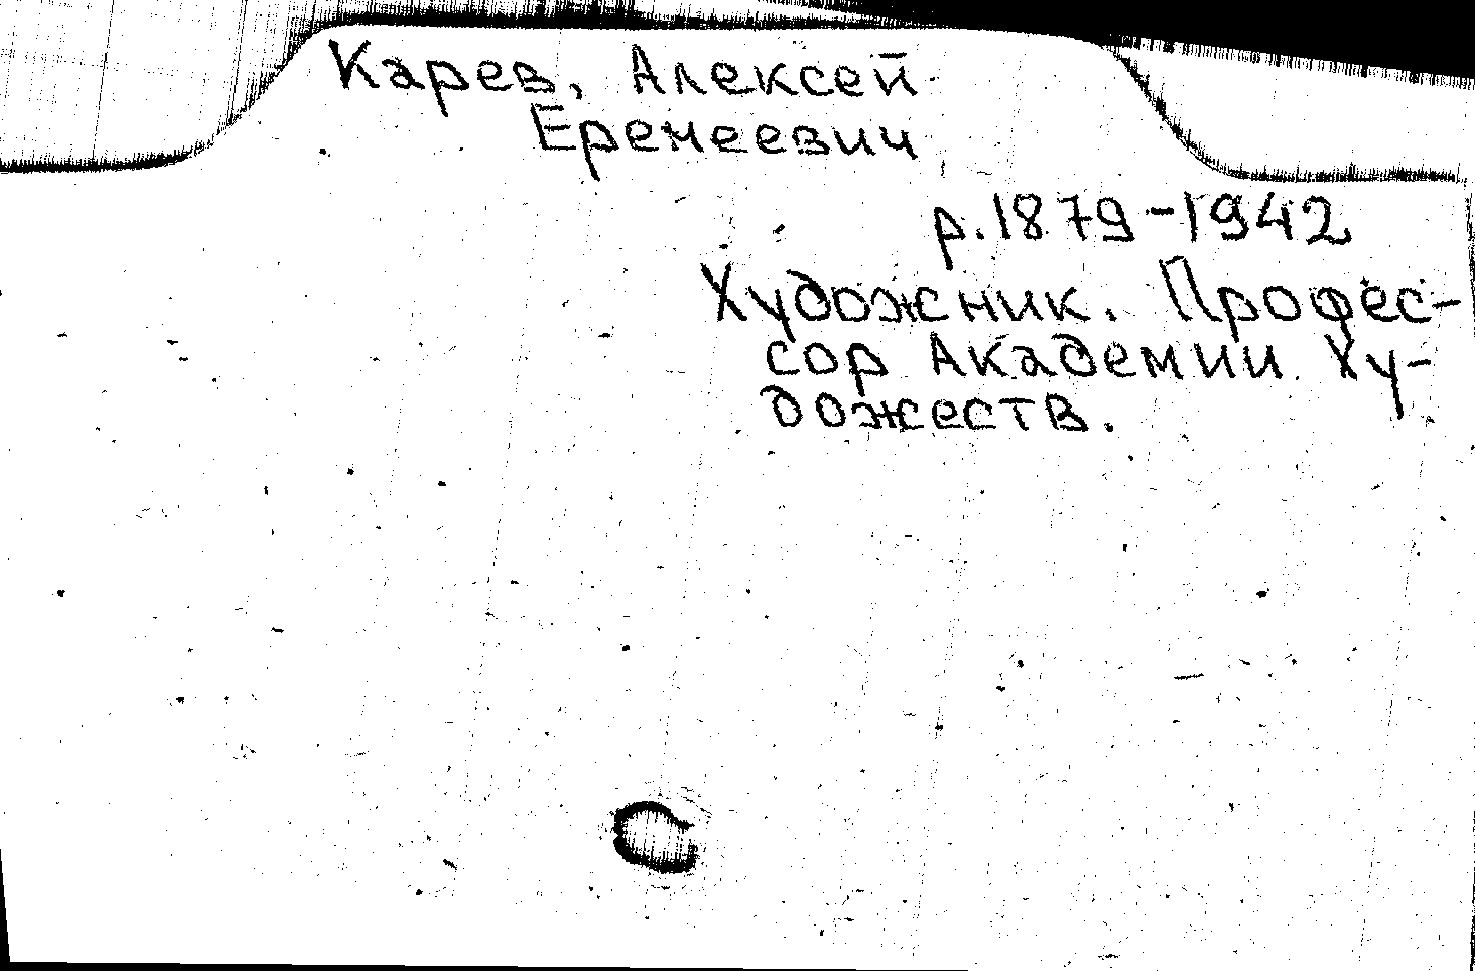 Карев, Алексей
Еремеевич
р. 1879-1942
Художник. Профес-
сор Академии Ху-
дожеств.